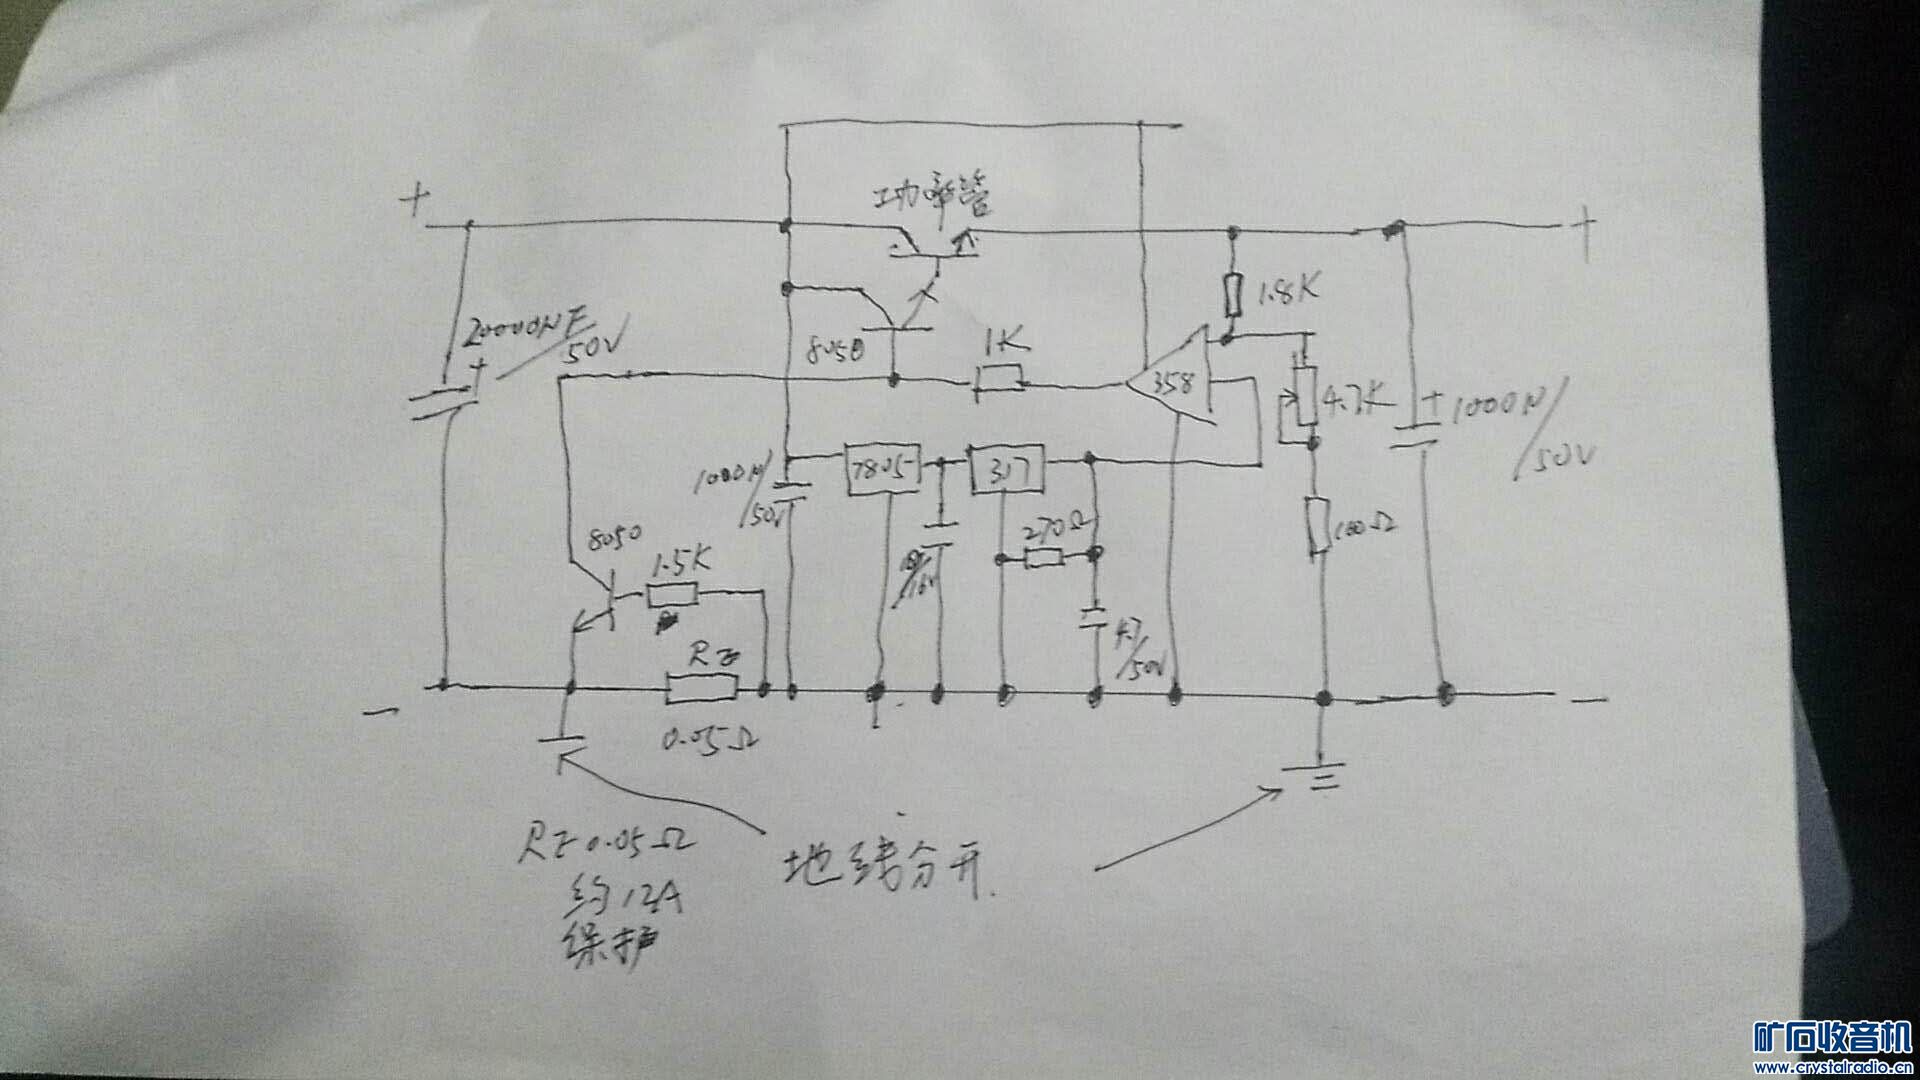 +
功率管
+
1.8K
20000μF
/50V
+
8050
1K
358
4.7K
+
1000μ
/50V
1000μ
/50V
7805
317
270Ω
100Ω
8050
1.5K
/16V
4.7
/50V
RE
0.05Ω
−
−
RE 0.05Ω
约12A
保护
地线分开.
矿石收音机
www.crystalradio.cn